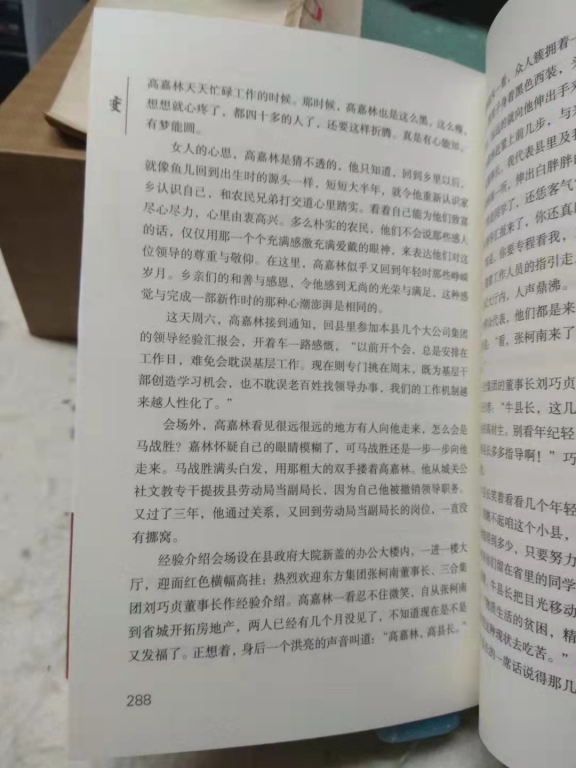 变
高嘉林天天忙碌工作的时候。那时候，高嘉林也是这么黑，这么瘦，
想想就心疼了，都四十多的人了，还要这样折腾。真是有心能知，
有梦能圆。
女人的心思，高嘉林是猜不透的，他只知道，回到乡里以后，
就像鱼儿回到出生时的源头一样，短短大半年，就令他重新认识家
乡认识自己，和农民兄弟打交道心里踏实。看着自己能为他们致富
尽心尽力，心里由衷高兴。多么朴实的农民，他们不会说那些感人
的话，仅仅用那一个个充满感激充满爱戴的眼神，来表达他们对这
位领导的尊重与敬仰。在这里，高嘉林似乎又回到年轻时那些峥嵘
岁月。乡亲们的和善与感恩，令他感到无尚的光荣与满足，这种感
觉与完成一部新作时的那种心潮澎湃是相同的。
这天周六，高嘉林接到通知，回县里参加本县几个大公司集团
的领导经验汇报会，开着车一路感慨，“以前开个会，总是安排在
工作日，难免会耽误基层工作。现在则专门挑在周末，既为基层干
部创造学习机会，也不耽误老百姓找领导办事，我们的工作机制越
来越人性化了。”
会场外，高嘉林看见很远很远的地方有人向他走来，怎么会是
马战胜？嘉林怀疑自己的眼睛模糊了，可马战胜还是一步一步向他
走来。马战胜满头白发，用那粗大的双手搂着高嘉林。他从城关公
社文教专干提拔县劳动局当副局长，因为自己他被撤销领导职务。
又过了三年，他通过关系，又回到劳动局当副局长的岗位，一直没
有挪窝。
经验介绍会场设在县政府大院新盖的办公大楼内，一进一楼大
厅，迎面红色横幅高挂：热烈欢迎东方集团张柯南董事长、三合集
团刘巧贞董事长作经验介绍。高嘉林一看忍不住微笑，自从张柯南
到省城开拓房地产，两人已经有几个月没见了，不知道现在是不是
又发福了。正想着，身后一个洪亮的声音叫道：“高嘉林，高县长。”
288
一看，众人簇拥着一
身着黑色西装，
就向他伸出手
上前几步，与
我代表县里及
伸出白胖胖
了，还恁客气
报来了，你还真
你要专程看我，
工作人员的指引走
大厅内，人声鼎沸。
代表，他们都是来
“看，张柯南来
集团的董事长刘巧贞
“牛县长，这几
材生。别看年纪轻
多多指导啊！”巧
长笑着看看几个年轻
不起咱这个小县，
到多少，只要努力
们留在省里的同学
牛县长把目光移动
生活的贫困，精
现状去吃苦。”
一席话说得那几